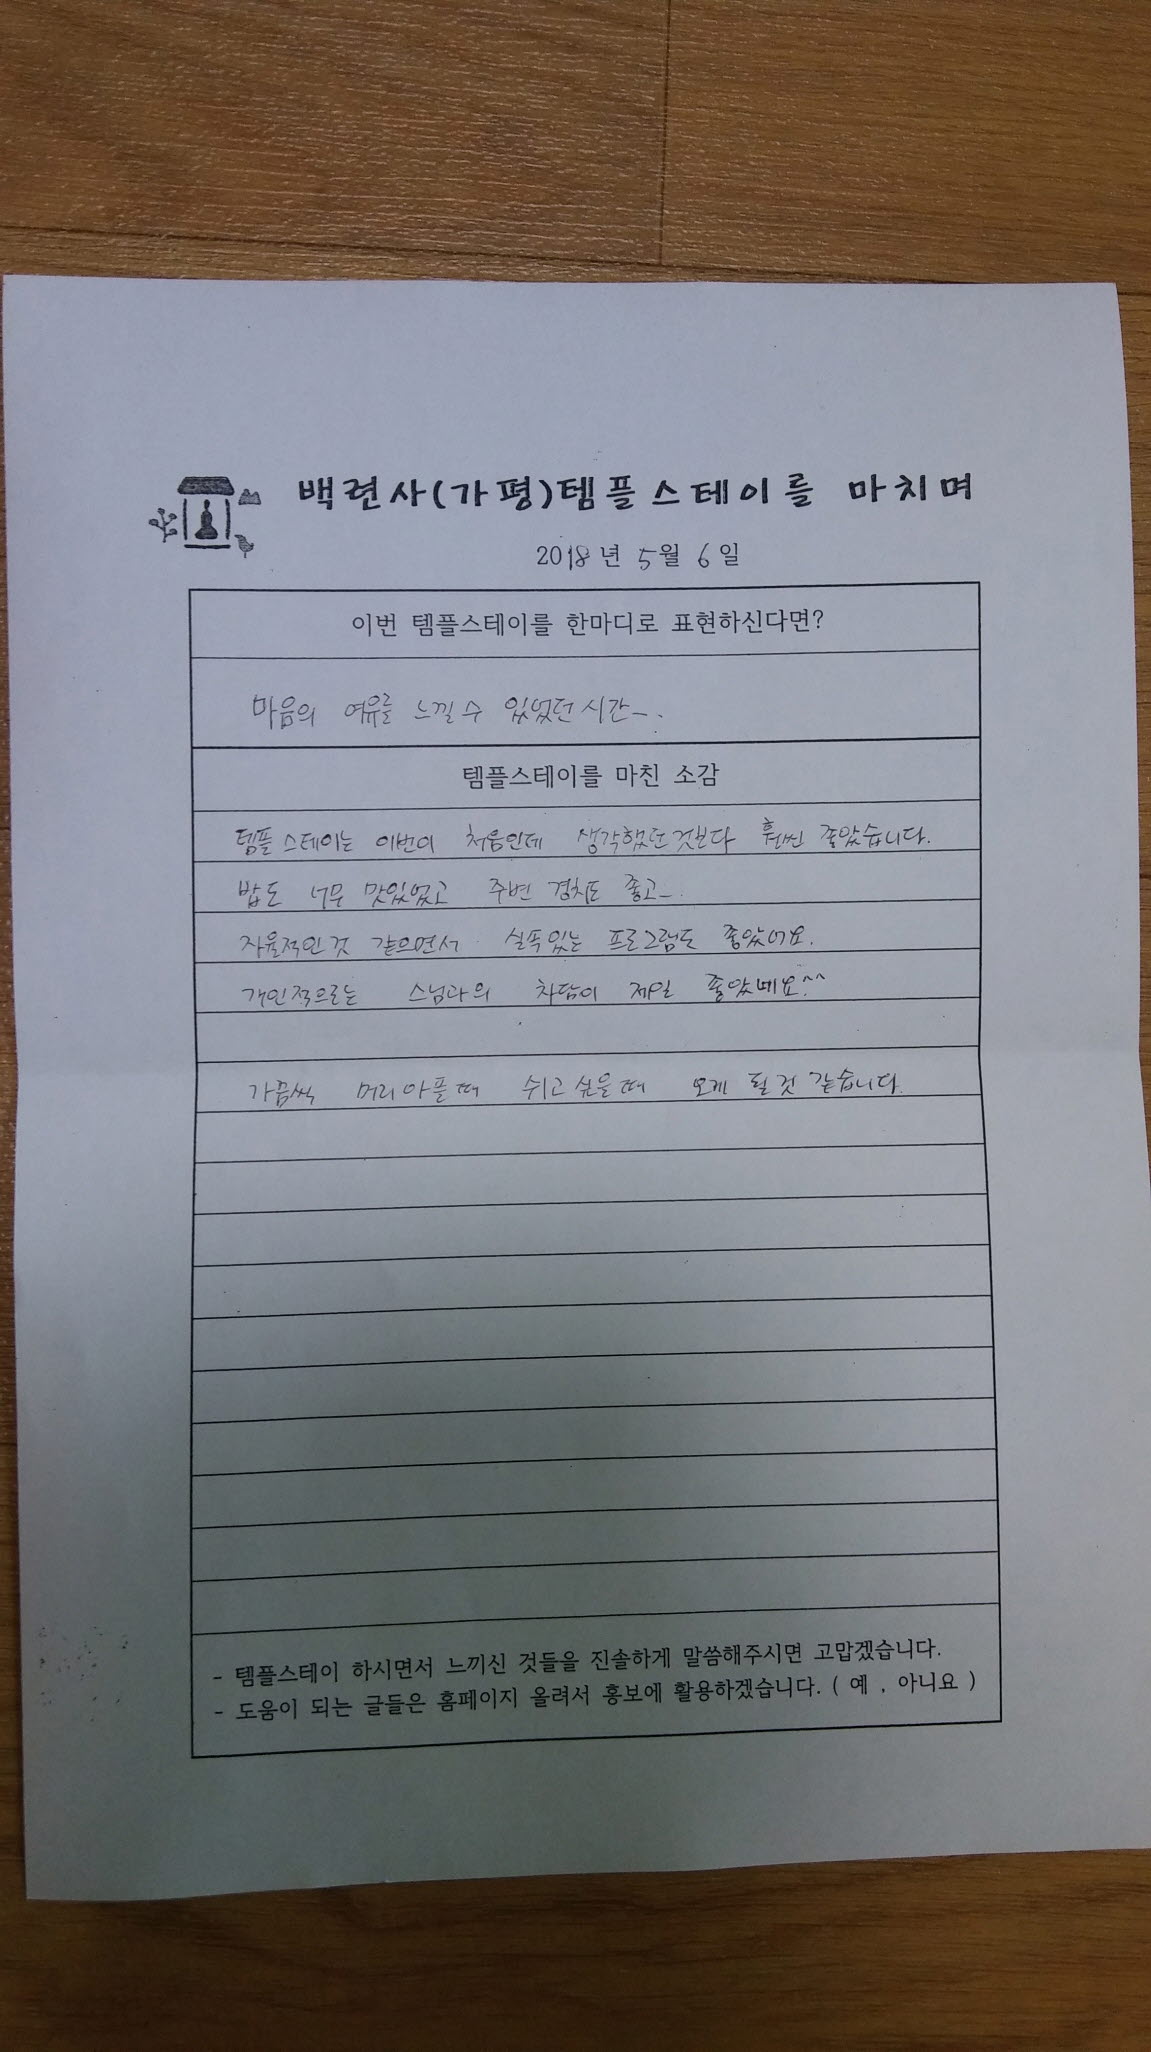 백련사(가평)템플스테이를 마치며
2018년 5월 6일
이번 템플스테이를 한마디로 표현하신다면?
마음의 여유를 느낄 수 있었던 시간_.
템플스테이를 마친 소감
템플스테이는 이번이 처음인데 생각했던것보다 훨씬 좋았습니다.
밥도 너무 맛있었고 주변 경치도 좋고_.
자율적인것 같으면서 실속있는 프로그램도 좋았어요.
개인적으로는 스님과의 차담이 제일 좋았네요!^^
가끔씩 머리아플때 쉬고싶을때 오게 될것 같습니다.
- 템플스테이 하시면서 느끼신 것들을 진솔하게 말씀해주시면 고맙겠습니다.
- 도움이 되는 글들은 홈페이지 올려서 홍보에 활용하겠습니다. ( 예 , 아니요 )